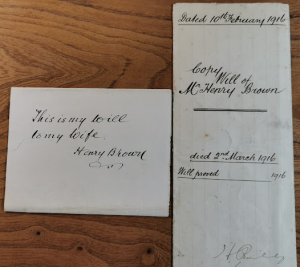 This is my will
to my wife.
Henry Brown
Dated 10th February 1916
Copy
Will of
Mr Henry Brown
died 2nd March 1916
Will proved 1916